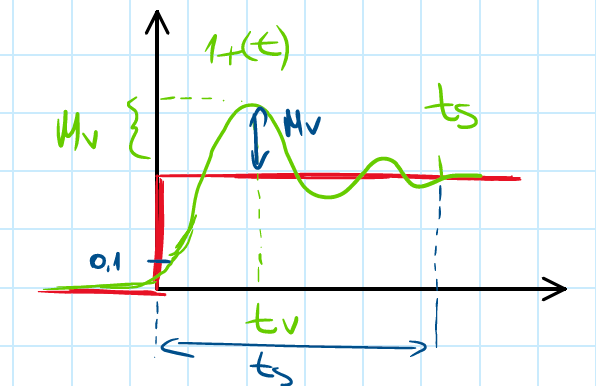 1+(t)
Mv
Mv
ts
0,1
tv
ts